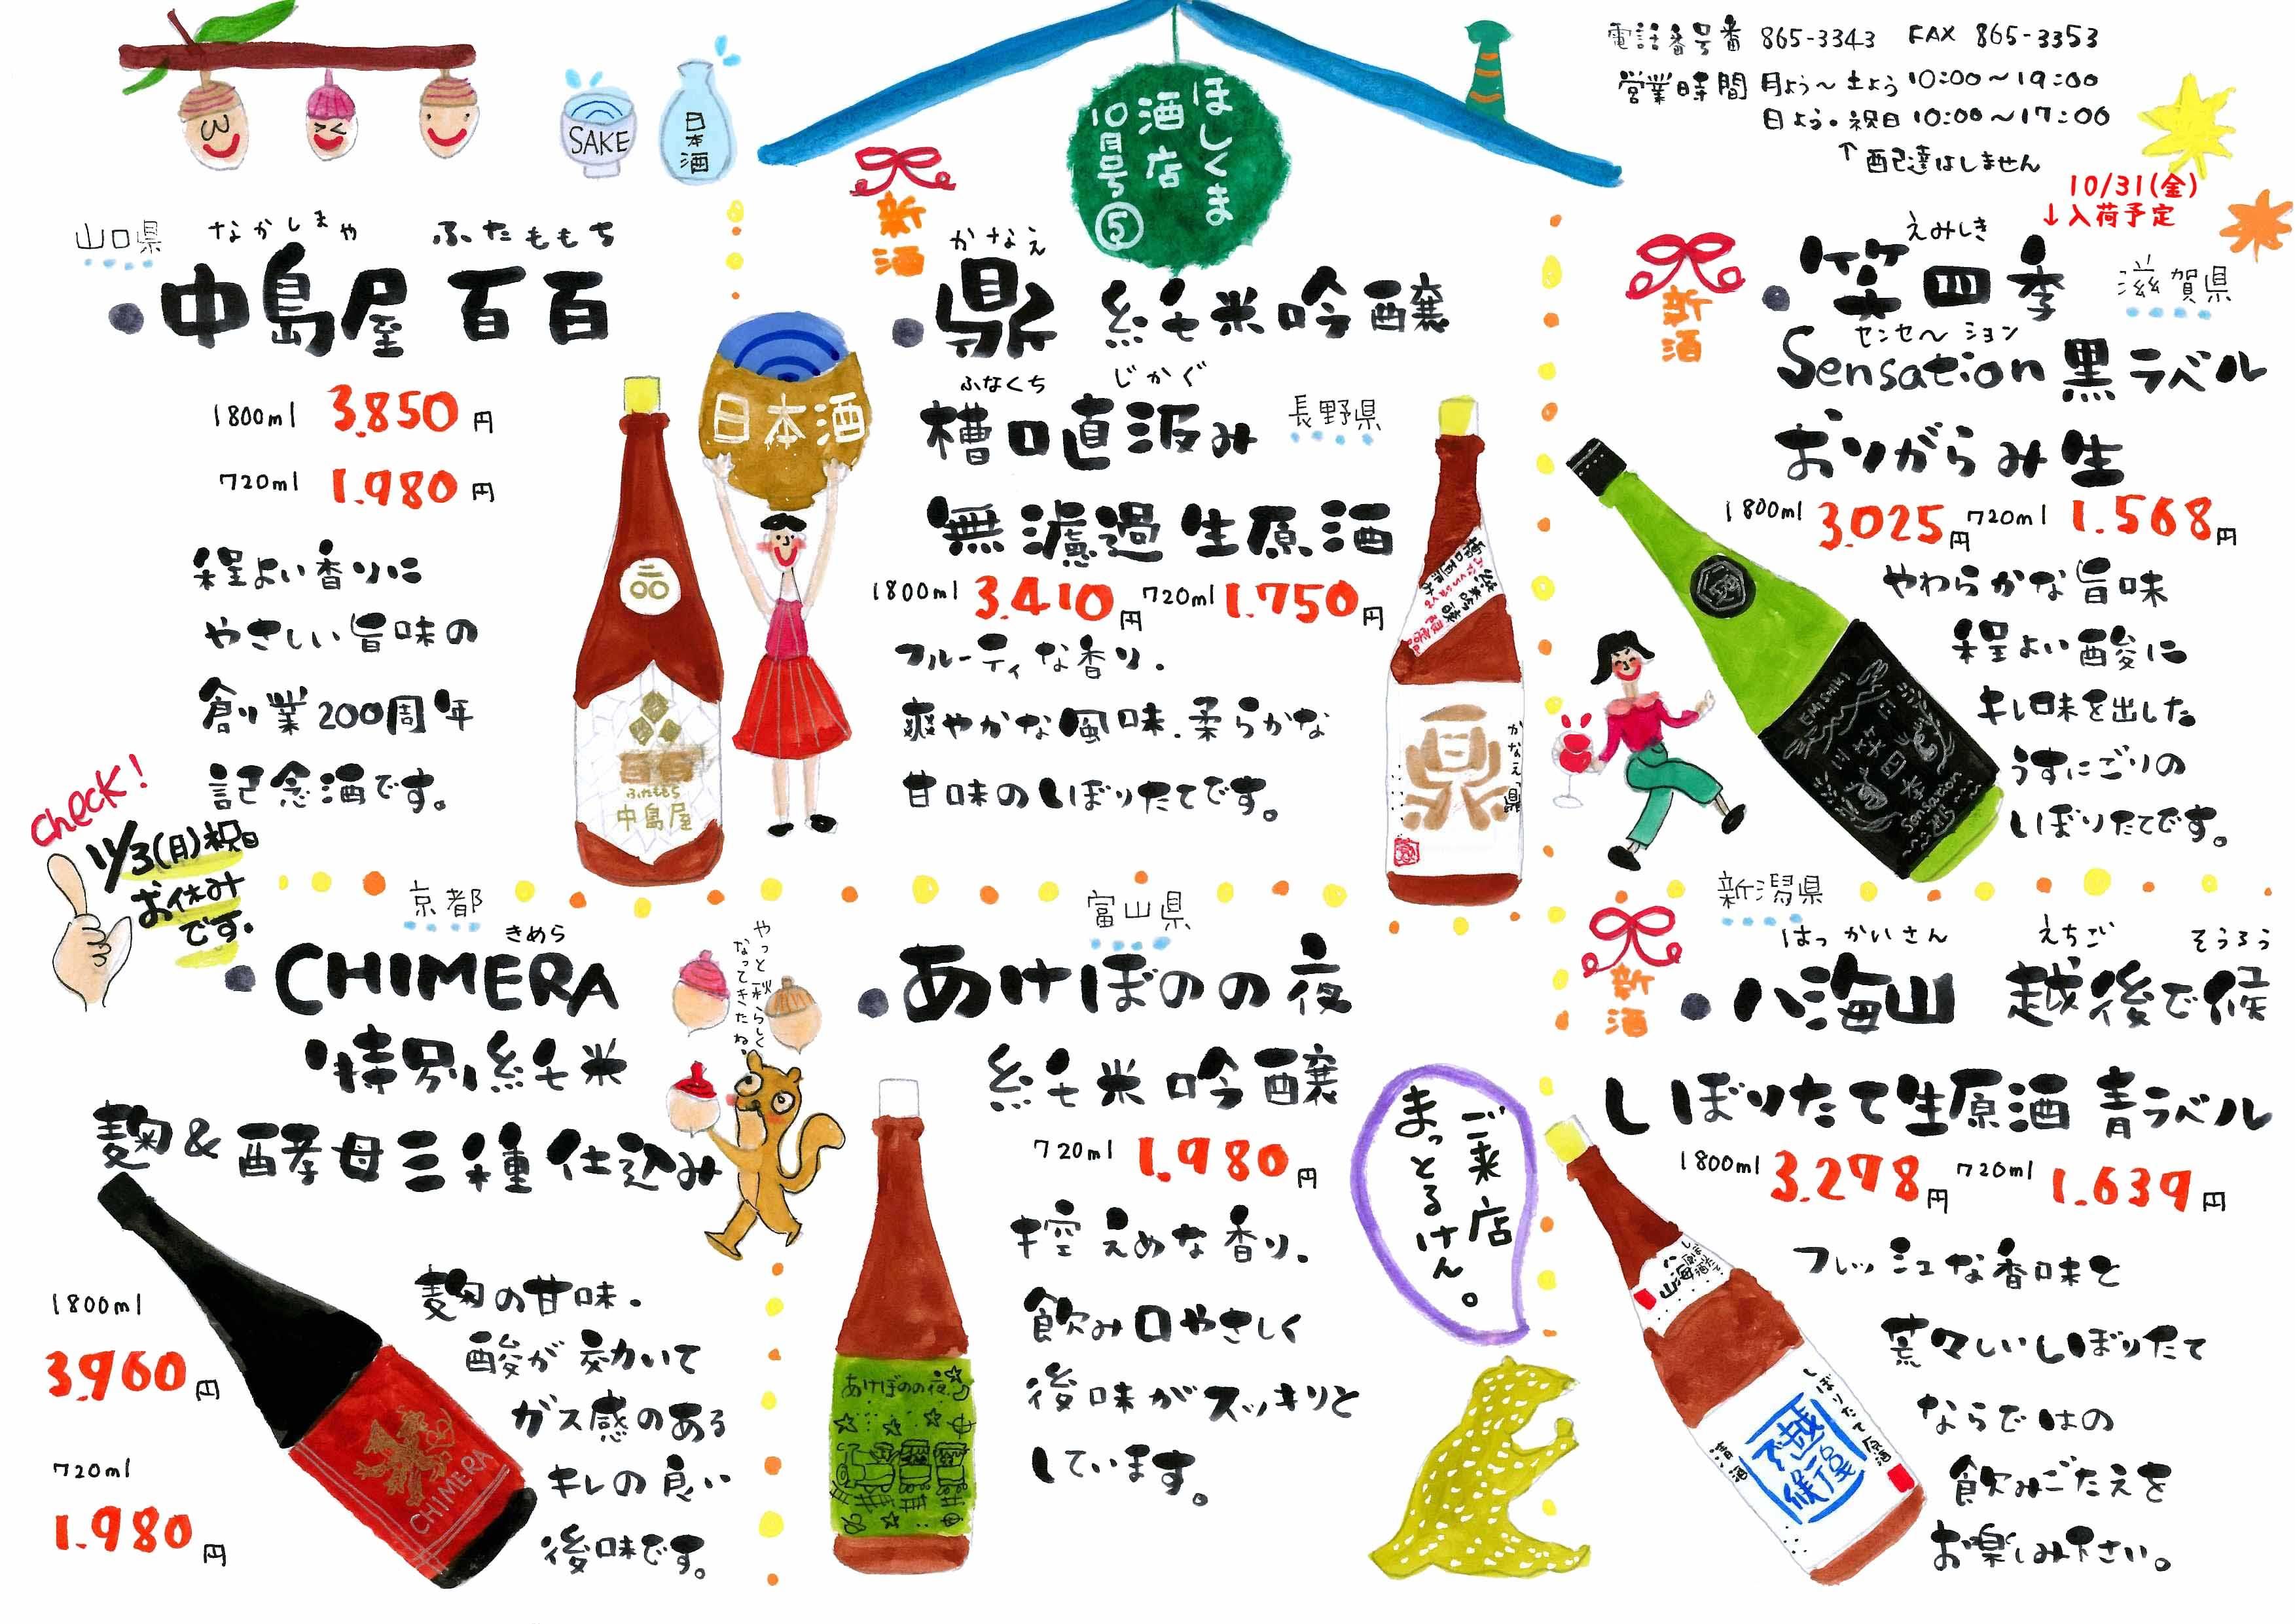 SAKE
日本酒
ほしくま
酒店
10月号⑤
電話番号 865-3343 FAX 865-3353
営業時間 月よう〜土よう 10:00〜19:00
日よう・祝日 10:00〜17:00
↑配達はしません
山口県
なかしまや ふたももち
中島屋 百百
1800ml 3.850円
720ml 1.980円
程よい香りに
やさしい旨味の
創業200周年
記念酒です。
日本酒
百百
ふたももち
中島屋
check!
11/3(月)祝日
お休み
です。
新酒
かなえ
鼎 純米吟醸
ふなくち じかぐ
槽口直汲み 長野県
無濾過生原酒
1800ml 3.410円 720ml 1.750円
フルーティな香り.
爽やかな風味.柔らかな
甘味のしぼりたてです。
純米吟醸
槽口直汲み
鼎
かなえ 鼎
10/31(金)
↓入荷予定
新酒
えみしき
笑四季 滋賀県
センセ〜ション
Sensation 黒ラベル
おりがらみ生
1800ml 3.025円 720ml 1.568円
やわらかな旨味
程よい酸に
キレ味を出した
うすにごりの
しぼりたてです。
EMISHIKI
笑四季
Sensation
京都
きめら
CHIMERA
特別純米
麹&酵母三種仕込み
1800ml
3.960円
720ml
1.980円
麹の甘味.
酸が効いて
ガス感のある
キレの良い
後味です。
CHIMERA
やっと秋らしく
なってきたね、
富山県
あけぼのの夜
純米吟醸
720ml 1.980円
控えめな香り.
飲み口やさしく
後味がスッキリと
しています。
あけぼのの夜
ご来店
まっとるけん。
新潟県
新酒
はっかいさん えちご そうろう
八海山 越後で候
しぼりたて生原酒 青ラベル
1800ml 3.278円 720ml 1.639円
フレッシュな香味と
荒々しいしぼりたて
ならではの
飲みごたえを
お楽しみ下さい。
八海山
しぼりたて原酒
越後で候
清酒